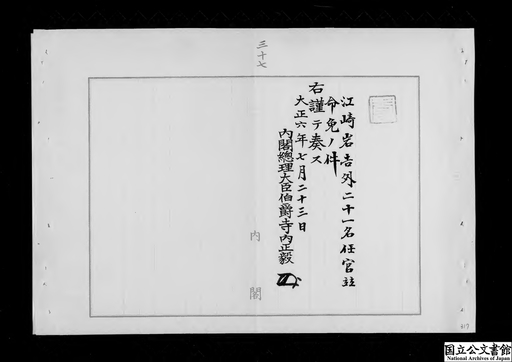 三十七
江崎岩吉外二十一名任官竝
命免ノ件
右謹テ奏ス
大正六年七月二十三日
內閣總理大臣伯爵寺內正毅
內閣
国立公文書館
National Archives of Japan